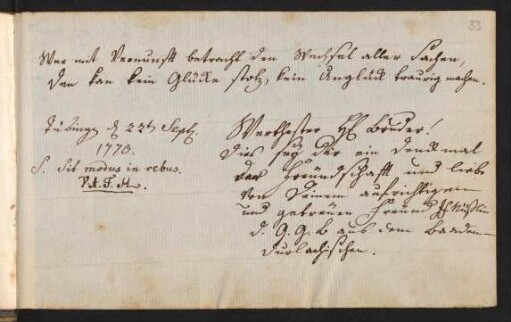 33
Wer mit Vernunft betracht den Wechsel aller Sachen,
Den kan kein Glücke stolz, kein Unglück traurig machen.
Tübing. d. 22t Sept.
1776.
S. Sit modus in rebus.
V. A. F. H.
Werthester Bruder!
Dies sey Dir ein denckmal
der Freündschafft und liebe
von Deinem aufrichtigen
und getreüen Freünd
d. G. G. B aus dem Baaden-
Durlachischen.